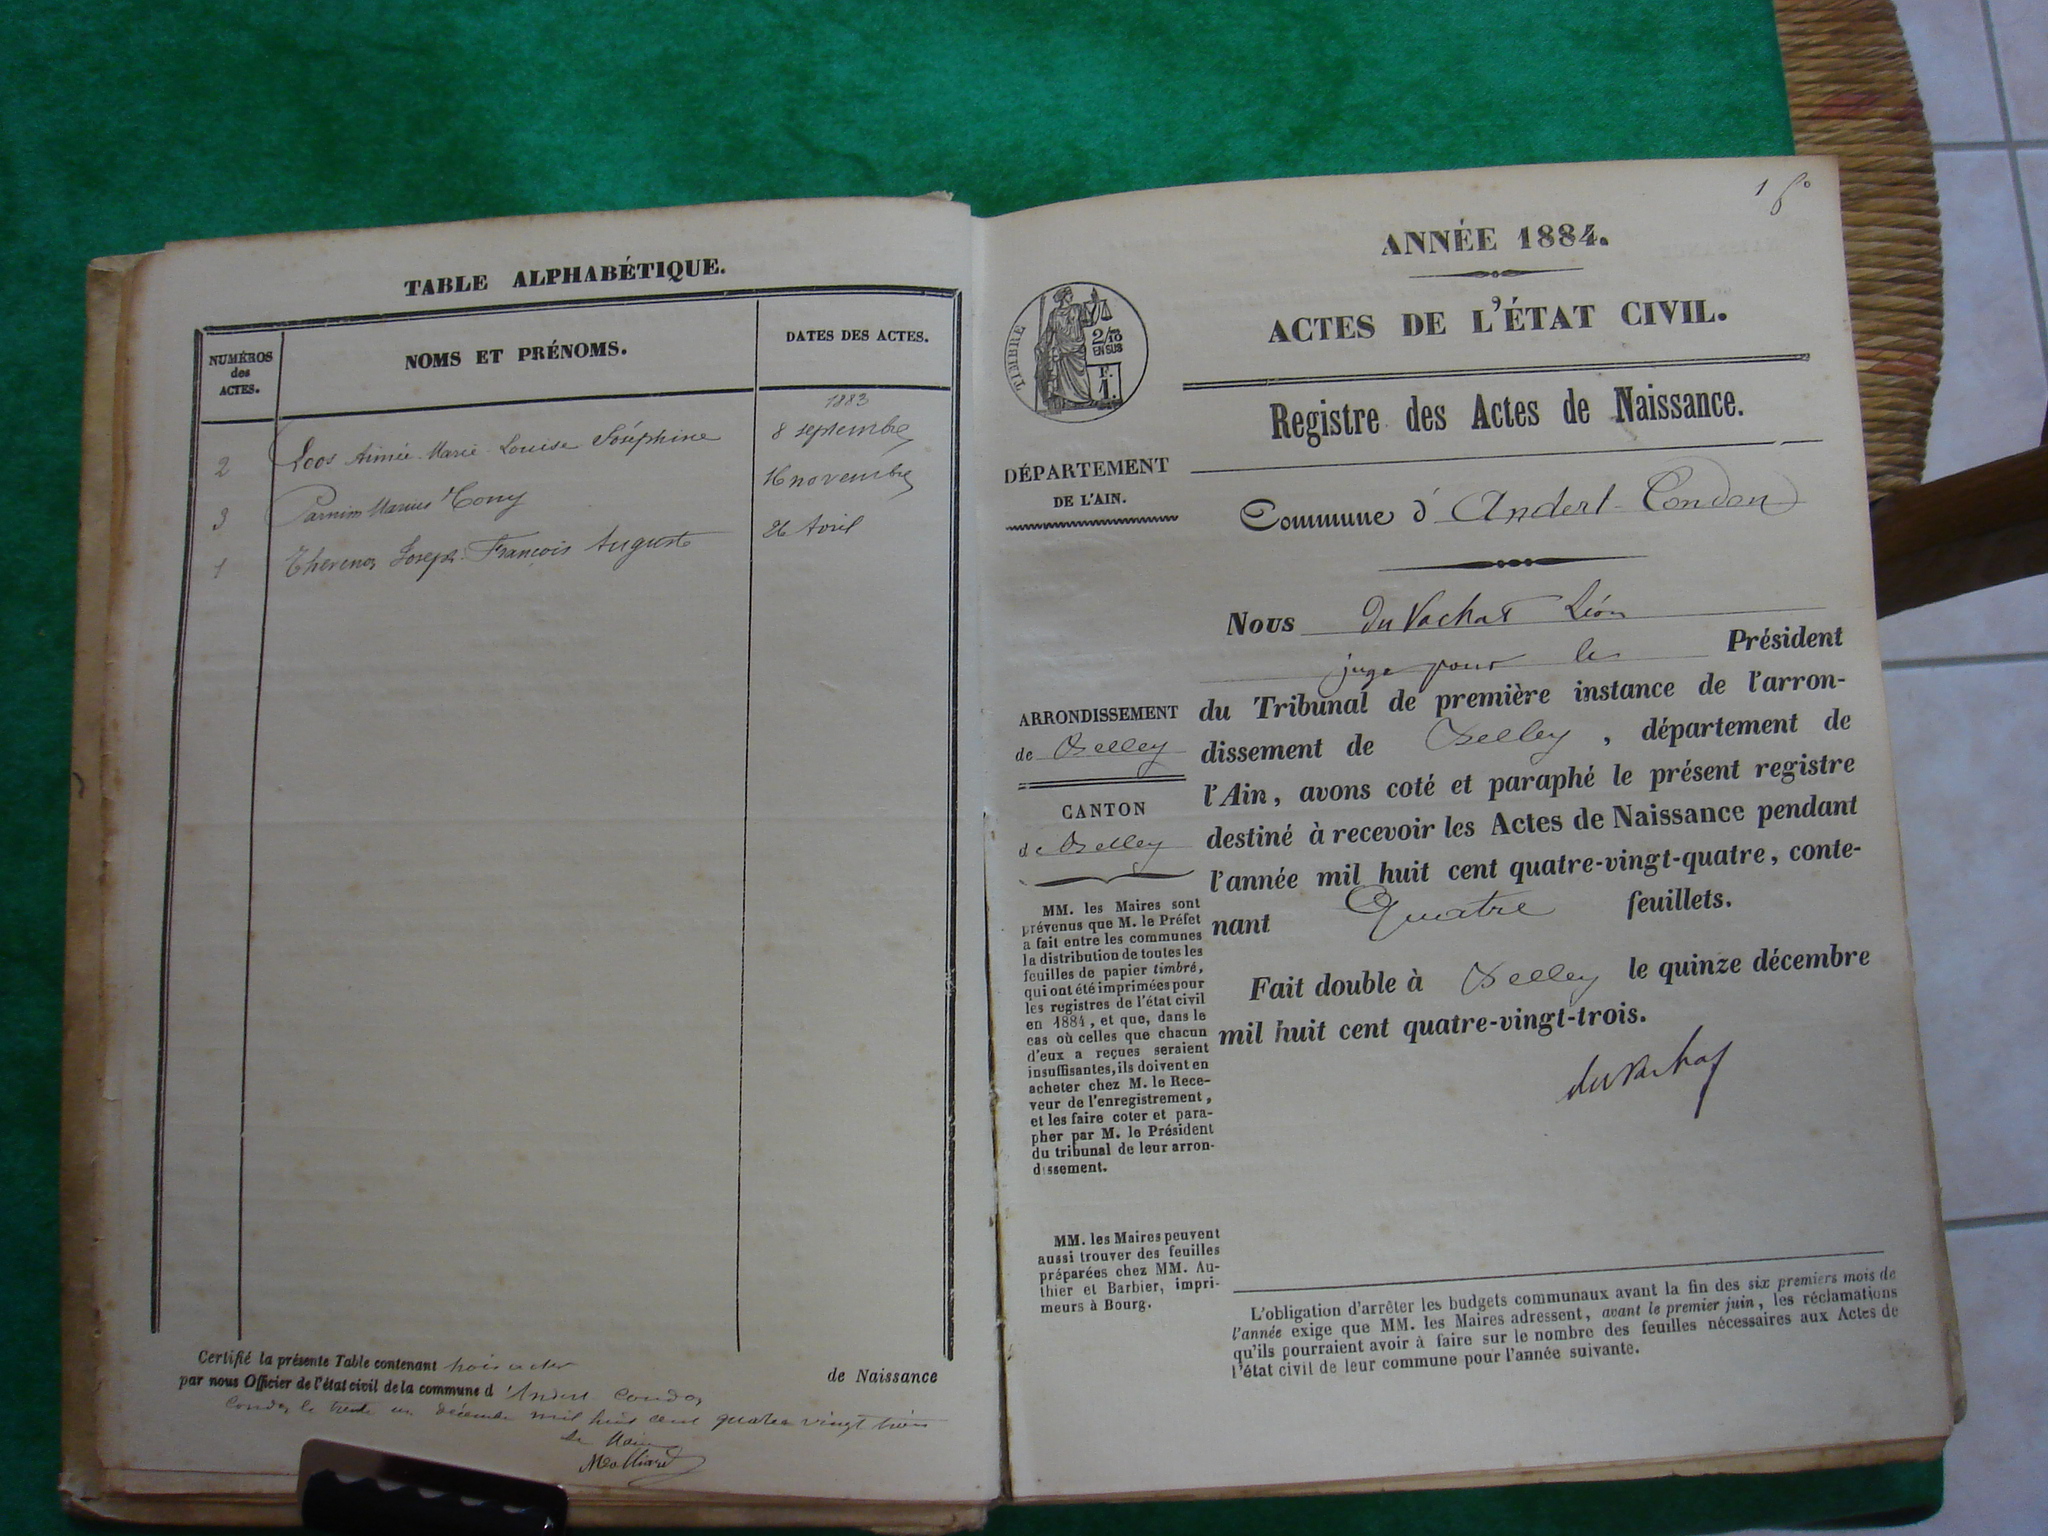 TABLE ALPHABÉTIQUE.
NUMÉROS
des
ACTES.
NOMS ET PRÉNOMS.
DATES DES ACTES.
1883
2 Loos Aimée Marie Louise Joséphine 8 septembre
3 Marius Tony 16 novembre
1 Thevenoz Joseph François Auguste 26 Avril
Certifié la présente Table contenant trois actes de Naissance
par nous Officier de l'état civil de la commune d'Andert Condon
Condon le trente un décembre mil huit cent quatre vingt trois
Le Maire
1 fo
ANNÉE 1884.
ACTES DE L'ÉTAT CIVIL.
TIMBRE
2/10
EN SUS
F.
1.
Registre des Actes de Naissance.
DÉPARTEMENT
DE L'AIN.
Commune d'Andert-Condon
Nous du Vachat Léon
juge pour le Président
du Tribunal de première instance de l'arron-
dissement de Belley, département de
l'Ain, avons coté et paraphé le présent registre
destiné à recevoir les Actes de Naissance pendant
l'année mil huit cent quatre-vingt-quatre, conte-
nant Quatre feuillets.
Fait double à Belley le quinze décembre
mil huit cent quatre-vingt-trois.
du Vachat
ARRONDISSEMENT
de Belley
CANTON
de Belley
MM. les Maires sont
prévenus que M. le Préfet
a fait entre les communes
la distribution de toutes les
feuilles de papier timbré,
qui ont été imprimées pour
les registres de l'état civil
en 1884, et que, dans le
cas où celles que chacun
d'eux a reçues seraient
insuffisantes, ils doivent en
acheter chez M. le Rece-
veur de l'enregistrement,
et les faire coter et para-
pher par M. le Président
du tribunal de leur arron-
dissement.
MM. les Maires peuvent
aussi trouver des feuilles
préparées chez MM. Au-
thier et Barbier, impri-
meurs à Bourg.
L'obligation d'arrêter les budgets communaux avant la fin des six premiers mois de
l'année exige que MM. les Maires adressent, avant le premier juin, les réclamations
qu'ils pourraient avoir à faire sur le nombre des feuilles nécessaires aux Actes de
l'état civil de leur commune pour l'année suivante.